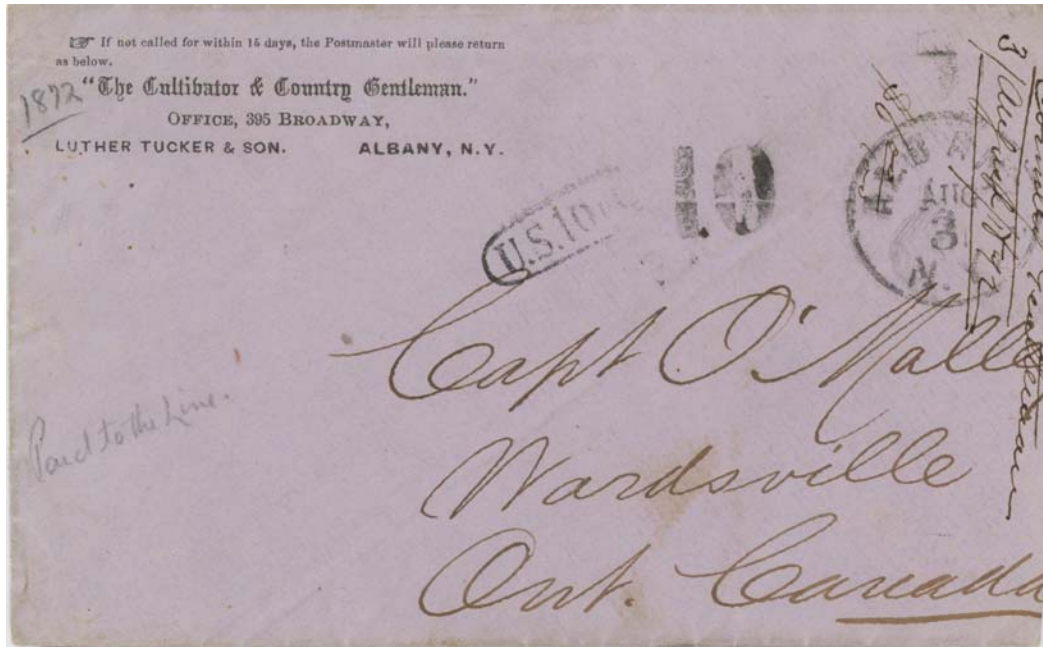 ☞ If not called for within 15 days, the Postmaster will please return
as below.
"The Cultivator & Country Gentleman."
OFFICE, 395 BROADWAY,
LUTHER TUCKER & SON. ALBANY, N.Y.
1872
U.S.10
10
ALBANY
AUG
3
N.
3/August/72
Gentleman
Capt O'Malle
Wardsville
Ont. Canada
Paid to the Line.